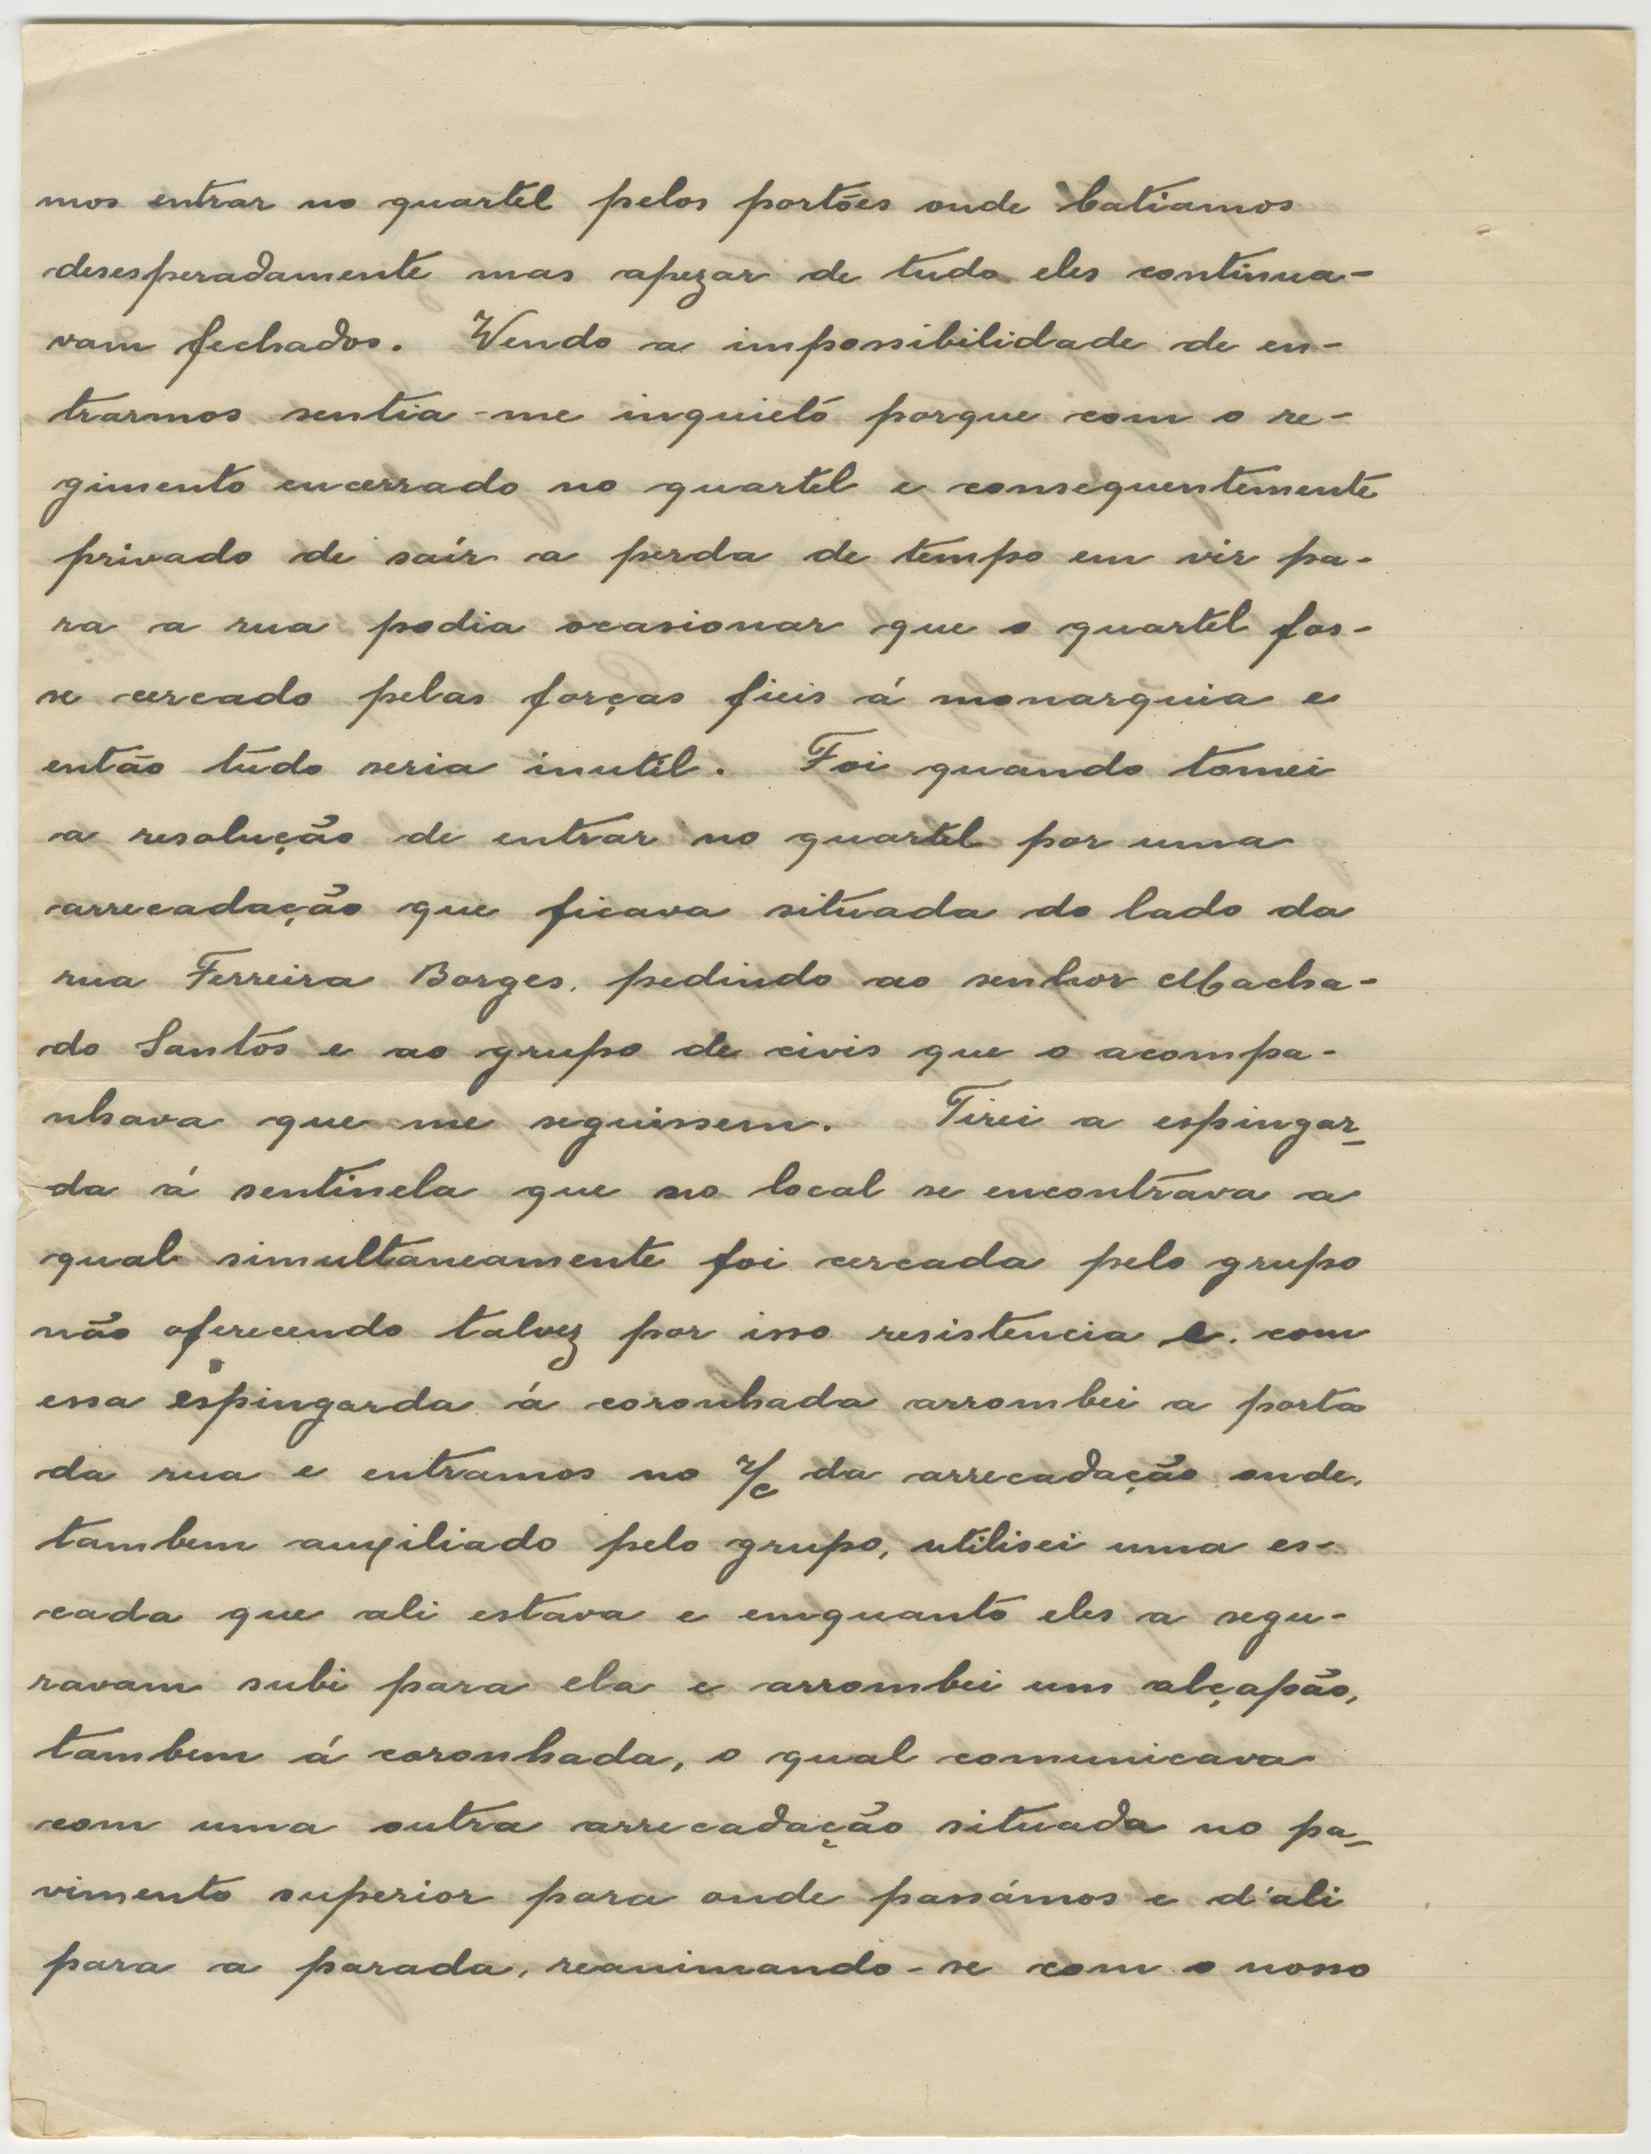 mos entrar no quartel pelos portões onde batiamos
desesperadamente mas apezar de tudo eles continua-
vam fechados. Vendo a impossibilidade de en-
trarmos sentia-me inquieto porque com o re-
gimento encerrado no quartel e consequentemente
privado de saír a perda de tempo em vir pa-
ra a rua podia ocasionar que o quartel fos-
se cercado pelas forças fieis á monarquia e
então tudo seria inutil. Foi quando tomei
a resolução de entrar no quartel por uma
arrecadação que ficava situada do lado da
rua Ferreira Borges, pedindo ao senhor Macha-
do Santos e ao grupo de civis que o acompa-
nhava que me seguissem. Tirei a espingar-
da á sentinela que no local se encontrava a
qual simultaneamente foi cercada pelo grupo
não oferecendo talvez por isso resistencia e. com
essa espingarda á coronhada arrombei a porta
da rua e entramos no r/c da arrecadação onde,
tambem auxiliado pelo grupo, utilisei uma es-
cada que ali estava e emquanto eles a segu-
ravam subi para ela e arrombei um alçapão,
tambem á coronhada, o qual comunicava
com uma outra arrecadação situada no pa-
vimento superior para onde passámos e d'ali
para a parada, reanimando-se com o nosso